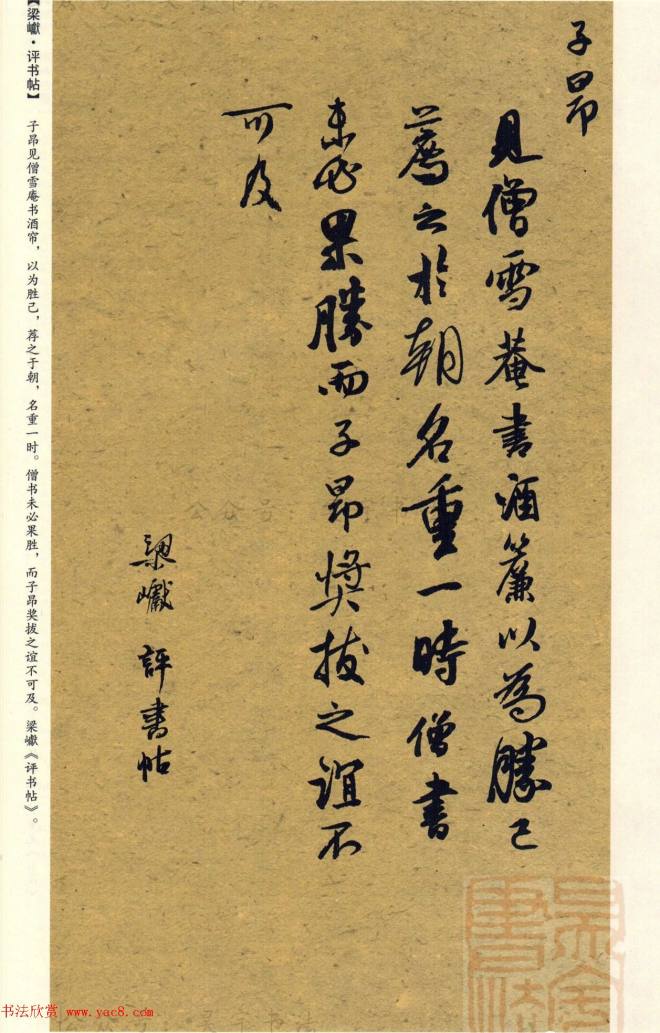 子昂
見僧雪菴書酒簾以為勝己
薦之於朝名重一時僧書
未必果勝而子昂獎拔之誼不
可及
梁巘評書帖
【梁巘·评书帖】
子昂见僧雪庵书酒帘，以为胜己，荐之于朝，名重一时。僧书未必果胜，而子昂奖拔之谊不可及。 梁巘《评书帖》。
书法欣赏 www.yac8.com